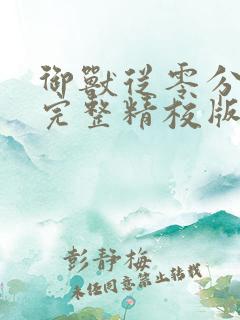 御獸從零分
完整精校版
彭靜梅
未經同意禁止轉載